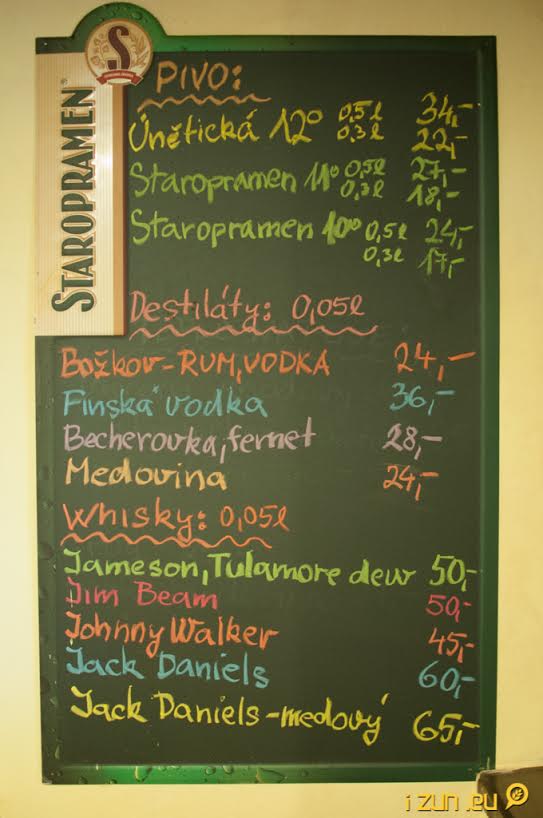 STAROPRAMEN
PIVO:
Únětická 12° 0,5l 34,-
0,3l 22,-
Staropramen 11° 0,5l 27,-
0,3l 18,-
Staropramen 10° 0,5l 24,-
0,3l 17,-
Destiláty: 0,05l
Božkov-RUM,VODKA 24,-
Finská vodka 36,-
Becherovka,fernet 28,-
Medovina 24,-
Whisky: 0,05l
Jameson,Tulamore dewr 50,-
Jim Beam 50,-
Johnny Walker 45,-
Jack Daniels 60,-
Jack Daniels-medový 65,-
i zun .eu